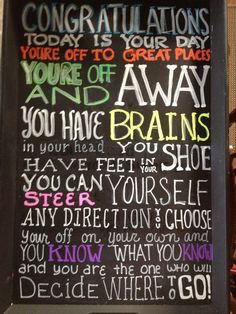 CONGRATULATIONS
TODAY IS YOUR DAY
YOU'RE OFF TO GREAT PLACES
YOU'RE OFF
AND AWAY
YOU HAVE BRAINS
in your head YOU
HAVE FEET IN YOUR SHOE
YOU CAN YOURSELF
STEER
ANY DIRECTION YOU CHOOSE
Your off on your own and
YOU KNOW WHAT YOU KNOW
and you are the one who will
DECIDE WHERE TO GO!